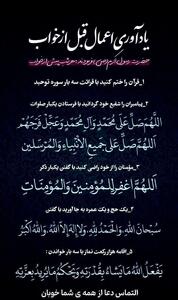 یادآوری اعمال قبل از خواب
حضرت رسول اکرم فرمودند هر شب پیش از خواب
۱_قرآن را ختم کنید با قرائت سه بار سوره توحید
۲_پیامبران را شفیع خود گردانید با فرستادن یکبار صلوات
اللهم صل علی محمد وآل محمد وعجل فرجهم
اللهم صل علی جمیع الأنبیاء والمرسلین
۳_مؤمنان را از خود راضی کنید با گفتن یکبار ذکر
اللهم اغفر للمؤمنین والمؤمنات
۴_یک حج و یک عمره به جا آورید با گفتن
سبحان الله، والحمدلله، ولا إله إلا الله، والله أکبر
۵_اقامه هزار رکعت نماز با سه بار خواندن:
یفعل الله ما یشاء بقدرته ویحکم ما یرید بعزته
التماس دعا از همه ی شما خوبان